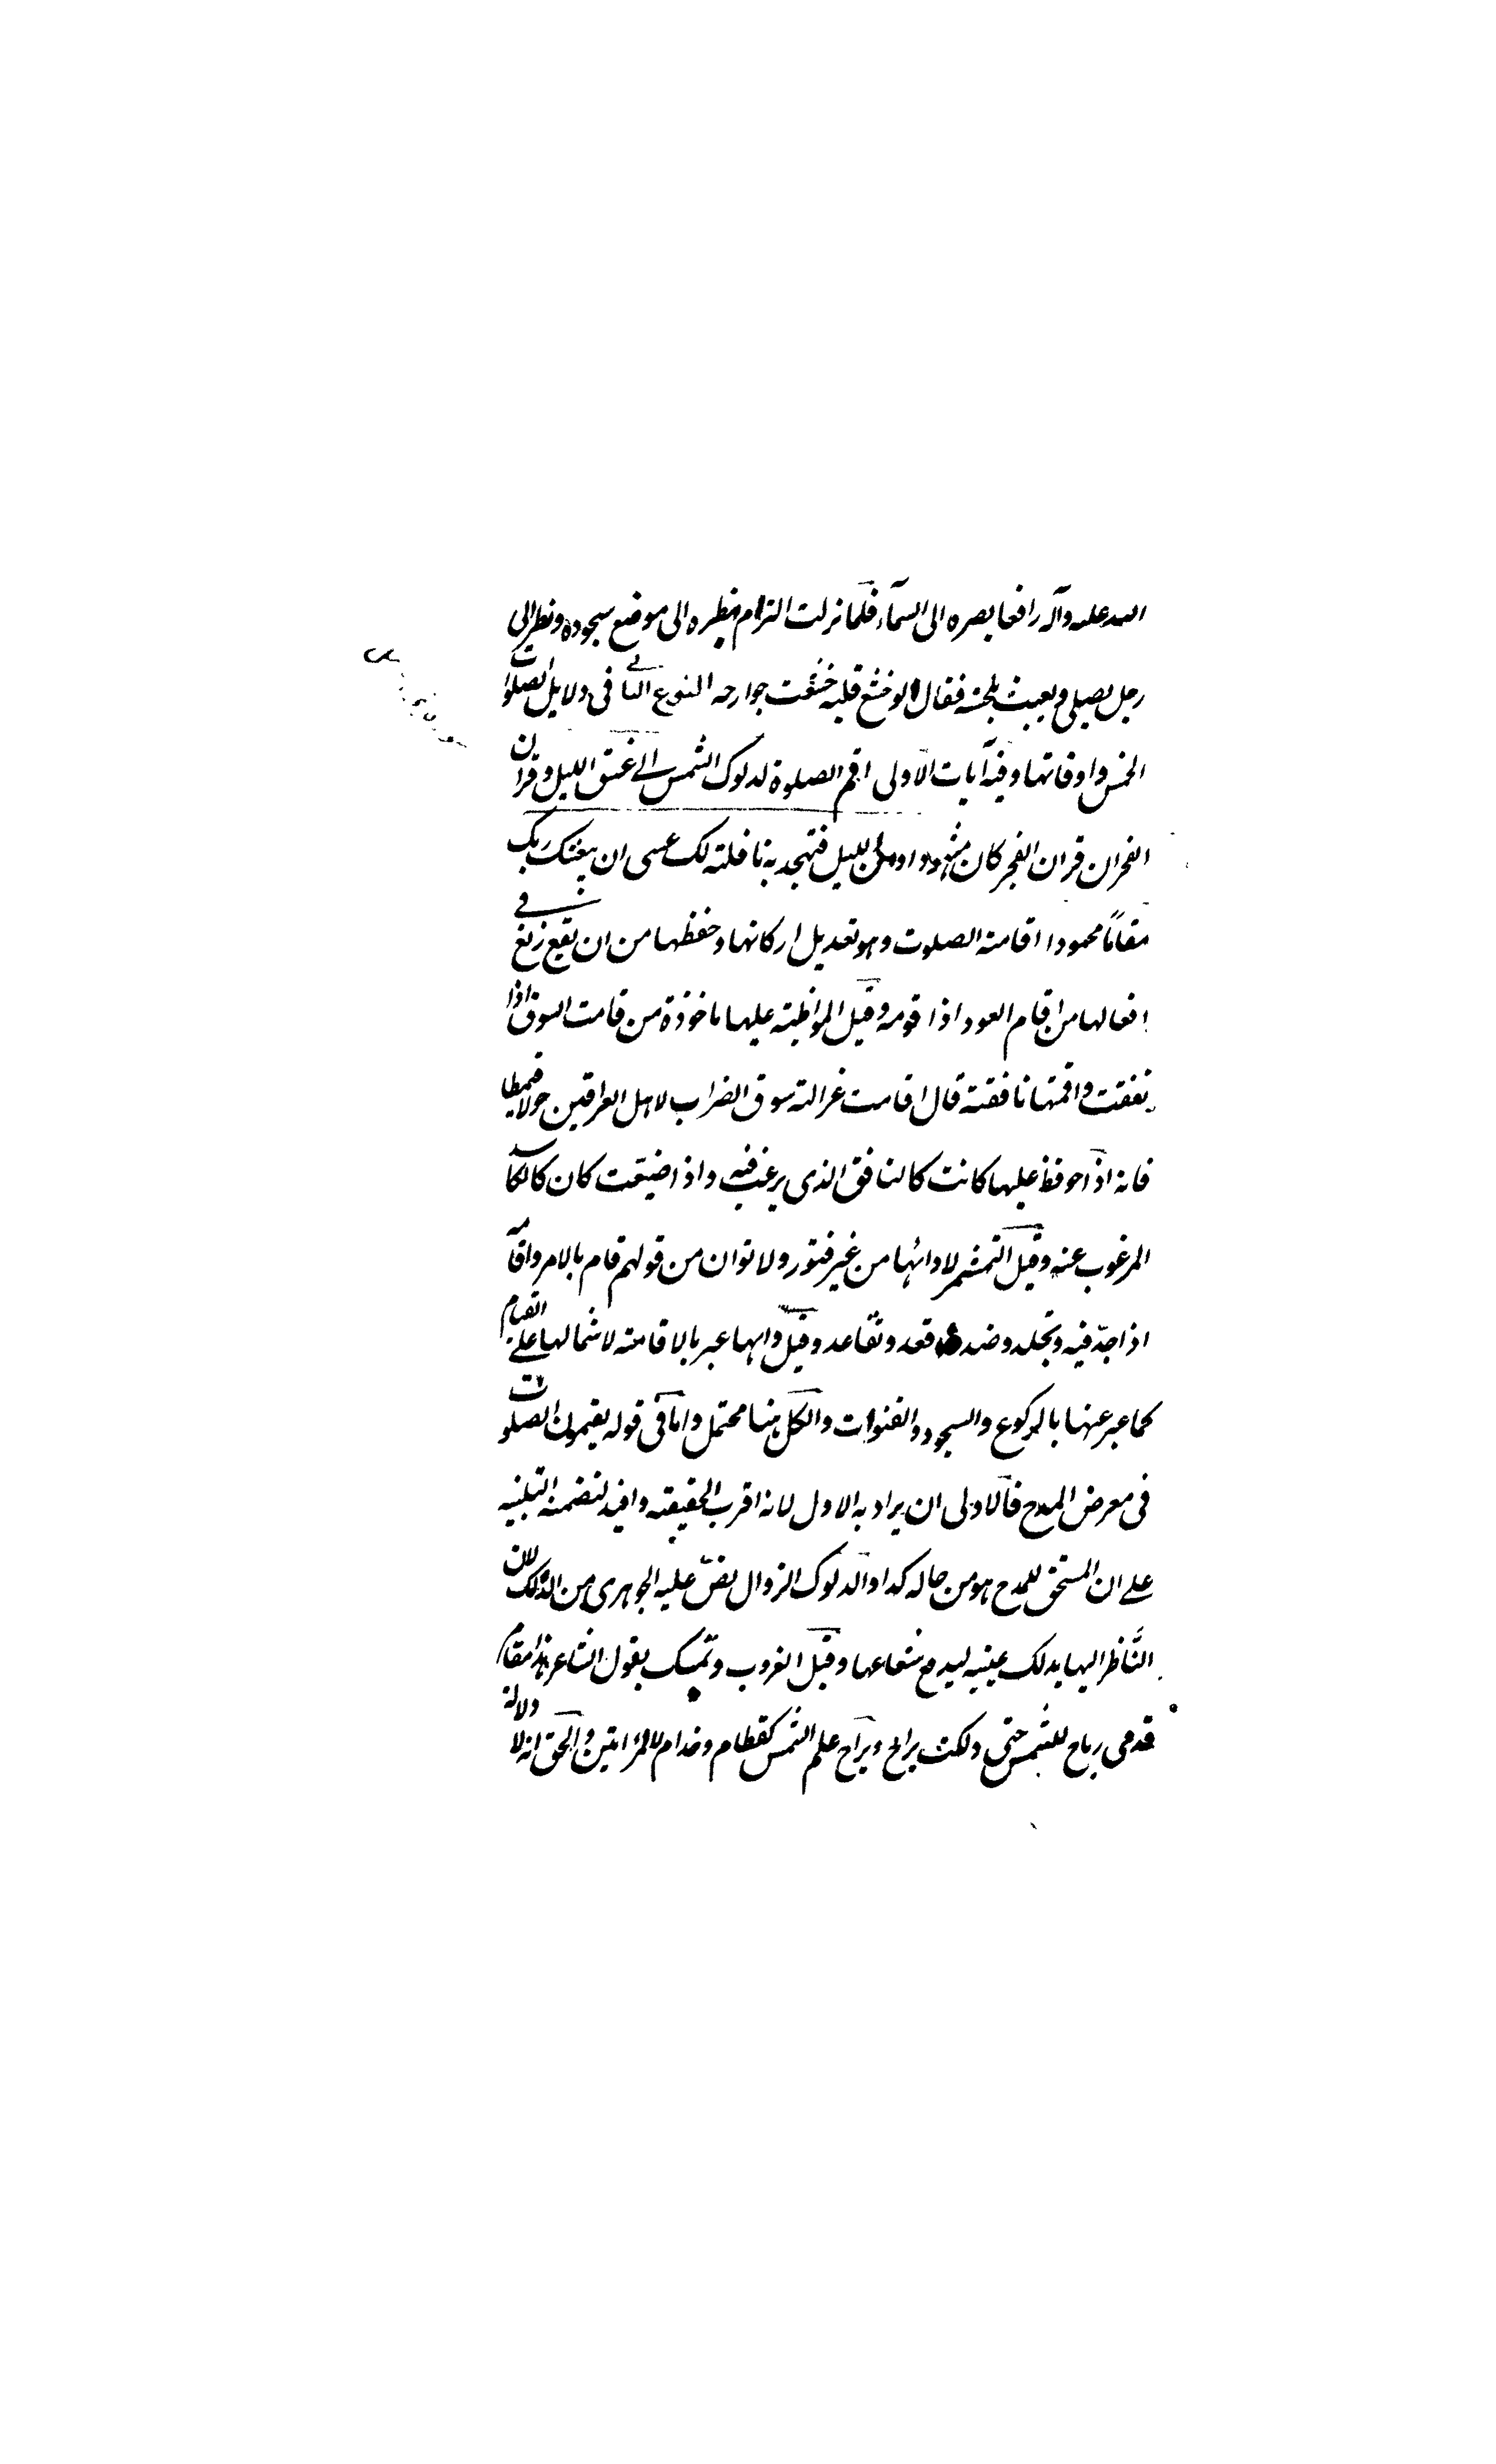 الله عليه وآله رافعا بصره الى السمآء فلما نزلت التزم بنظره الى موضع سجوده ونظر الى
رجل يصلى ويعبث بلحيته فقال لو خشع قلبه خشعت جوارحه النوع الثانى فى دلايل الصلوات
الخمس واوقاتها وفيه آيات الاولى اقم الصلوة لدلوك الشمس الى غسق الليل وقران
الفجر ان قران الفجر كان مشهودا ومن الليل فتهجد به نافلة لك عسى ان يبعثك ربك
مقامًا محمودا اقامة الصلوت وهو تعديل اركانها وحفظها من ان يقع زيغ فى
افعالها من اقام العود اذا قومه وقيل المواظبة عليها ماخوذة من قامت السوق اذا
نفقت واقمتها نافقة قال اقامت غزالة سوق الضراب لاهل العراقين حولا قميطا
فانه اذا حوفظ عليها كانت كالنافق الذى يرغب فيه واذا ضيعت كان كالكاسد
المرغوب عنه وقيل التشمر لادائها من غير فتور ولا توان من قولهم قام بالامر واقامه
اذا جدّ فيه وتجلد وضده قعد وتقاعد وقيل اداؤها عبر بالاقامة لاشتمالها على القيام
كما عبر عنها بالركوع والسجود والقنوات والكل هنا محتمل واما فى قوله يقيمون الصلوات
فى معرض المدح فالاولى ان يراد به الاول لانه اقرب الحقيقة وافيد لتضمنه التنبيه
على ان المستحق للمدح هو من حاله كذا والدلوك الزوال نصّ عليه الجوهرى من الدلك لان
النَّاظر اليها يدلك عينيه ليدفع شعاعها وقيل الغروب وتمسك بقول الشاعر هذا مقام
قدمى رباح للشمس حتى دلكت براح وبراح علم الشمس كقطام وحذام لامراتين والحق انه لا دلالة